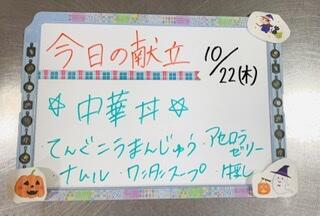 今日の献立 10/22(木)
☆ 中華丼 ☆
てんぐこうまんじゅう・アセロラ
ゼリー
ナムル・ワンタンスープ